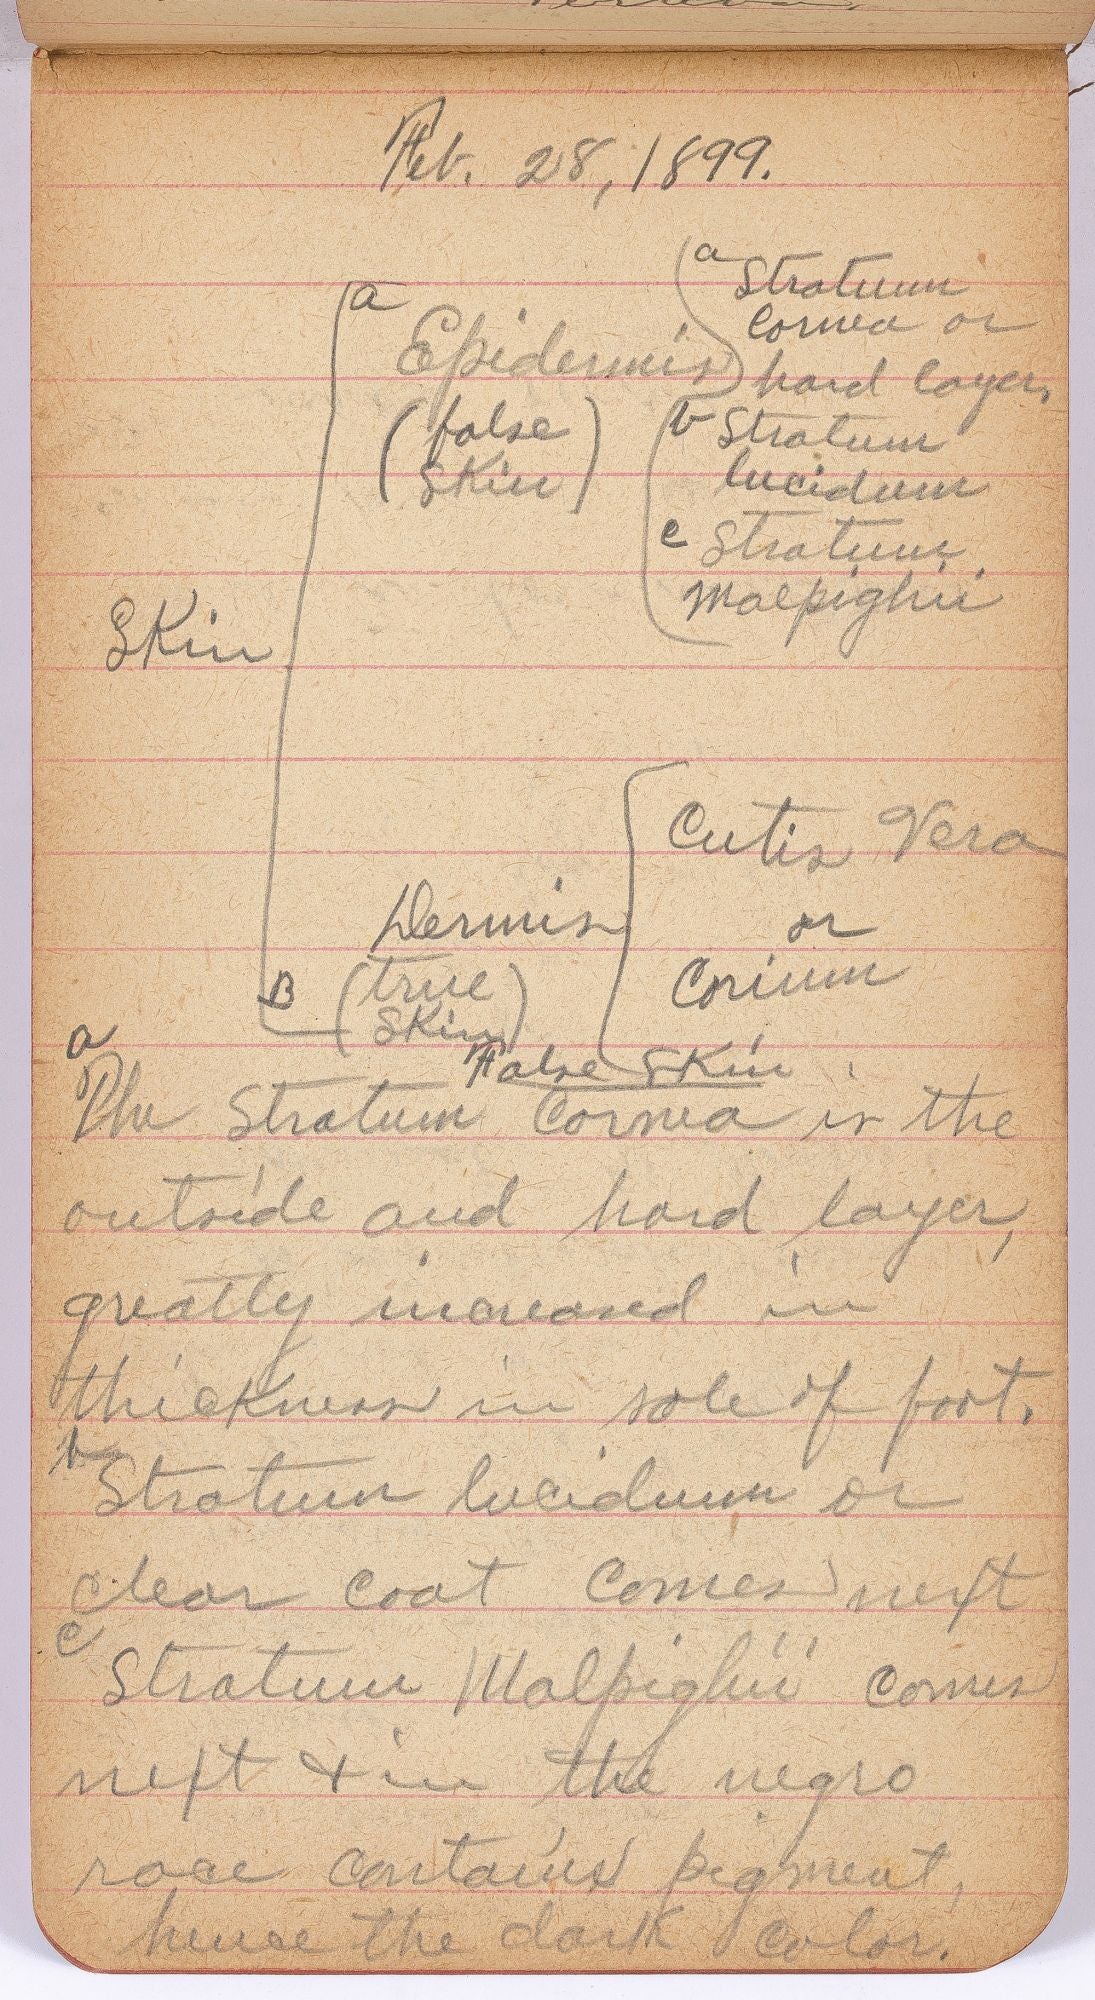 Feb. 28, 1899.
a Stratum
Cornea or
hard layer,
a
Epidermis
(false
skin)
b Stratum
lucidum
c Stratum
Malpighii
Skin
Cutis Vera
Dermis
or
B (true
skin)
Corium
False Skin
a
The Stratum Cornea is the
outside and hard layer,
greatly increased in
thickness in sole of foot.
b Stratum lucidum or
clear coat comes next
c
Stratum Malpighii comes
next & in the negro
race contains pigment,
hense the dark color.